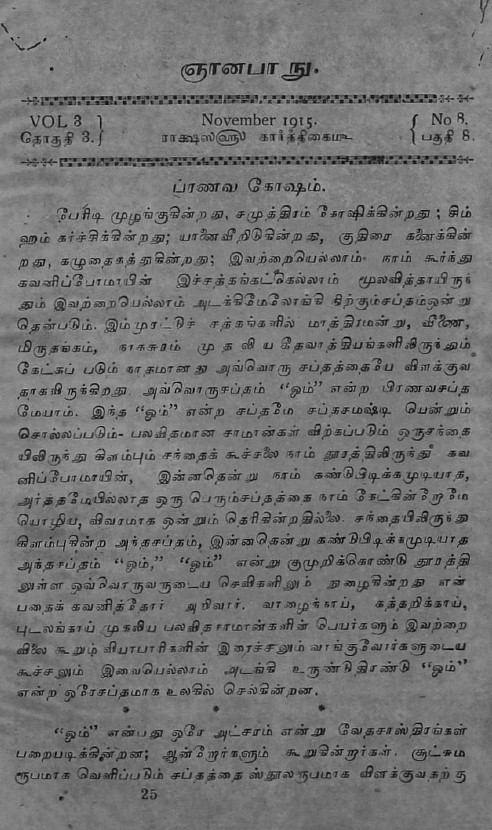 ஞானபாநு.
VOL 3 November 1915. No 8.
தொகுதி 3. ராக்ஷஸஹு கார்த்திகைமீ பகுதி 8.
ப்ரணவ கோஷம்.
பேரிடி முழங்குகின்றது, சமுத்திரம் கோஷிக்கின்றது; சிம்
ஹம் கர்ச்சிக்கின்றது; யானைவீறிடுகின்றது, குதிரை கனைக்கின்
றது, கழுதைகத்துகின்றது; இவற்றையெல்லாம் நாம் கூர்ந்து
கவனிப்போமாயின் இச்சத்தங்கட்கெல்லாம் மூலவித்தாயிருந்
தும் இவற்றையெல்லாம் அடக்கிமேலோங்கி நிற்கும்சப்தம்ஒன்று
தென்படும். இம்முரட்டுச் சத்தங்களில் மாத்திரமன்று, வீணை,
மிருதங்கம், நாகசுரம் முதலிய தேவாத்தியங்களிலிருந்தும்
கேட்கப் படும் நாதமானது அவ்வொரு சப்தத்தையே விளக்குவ
தாகவிருக்கிறது. அவ்வொருசப்தம் "ஓம்" என்ற பிரணவசப்த
மேயாம். இந்த "ஓம்" என்ற சப்தமே சப்தசமஷ்டி யென்றும்
சொல்லப்படும்- பலவிதமான சாமான்கள் விற்கப்படும் ஒருசந்தை
யிலிருந்து கிளம்பும் சந்தைக் கூச்சலை நாம் தூரத்திலிருந்து கவ
னிப்போமாயின், இன்னதென்று நாம் கண்டுபிடிக்கமுடியாத,
அர்த்தமேயில்லாத ஒரு பெரும்சப்தத்தை நாம் கேட்கின்றோமே
யொழிய, விவரமாக ஒன்றும் தெரிகின்றதில்லை. சந்தையிலிருந்து
கிளம்புகின்ற அந்தசப்தம், இன்னதென்று கண்டுபிடிக்கமுடியாத
அந்தசப்தம் "ஓம்," "ஓம்" என்று குமுறிக்கொண்டு தூரத்தி
லுள்ள ஒவ்வொருவருடைய செவிகளிலும் நுழைகின்றது என்
பதைக் கவனித்தோர் அறிவார். வாழைக்காய், கத்தறிக்காய்,
புடலங்காய் முதலிய பலவிதசாமான்களின் பெயர்களும் இவற்றை
விலை கூறும் வியாபாரிகளின் இரைச்சலும் வாங்குவோர்களுடைய
கூச்சலும் இவையெல்லாம் அடங்கி உருண்டுதிரண்டு "ஓம்"
என்ற ஒரேசப்தமாக உலகில் செல்கின்றன.
* * *
"ஓம்" என்பது ஒரே அட்சரம் என்று வேதசாஸ்திரங்கள்
பறையடிக்கின்றன; ஆன்றோர்களும் கூறுகின்றார்கள். சூட்சும
ரூபமாக வெளிப்படும் சப்தத்தை ஸ்தூலரூபமாக விளக்குவதற்கு
25